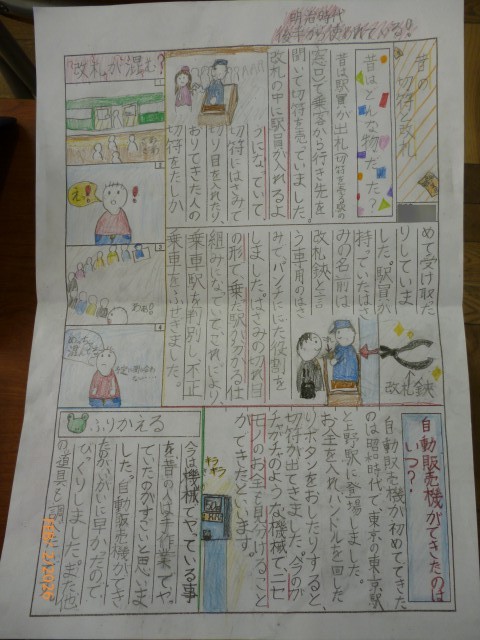 明治時代
後半から使われている!
昔の
切符と改札
昔はどんな物だった?
昔は駅員が出札(切符を売る)の
窓口で乗客から行き先を
聞いて切符を売っていました。
改札の中に駅員が入れるよ
うになっていて
切符にはさみで
切り目を入れたり、
おりてきた人の
切符をたしか
めて受け取
たりしていま
した。駅員が
持っていたはさ
みの名前は
改札鋏と言
う専用のはさ
みでパンチににた役割を
しました。はさみの切れ目
の形で乗た駅が分かる仕
組みになっていてこれにより
乗車駅を判別し、不正
乗車をふせぎました。
改札鋏
「改札が混む?」
1
2
え!
3
4
めっちゃ
混んでる
自動販売機ができたのは
いつ?
自動販売機が初めてできた
のは昭和時代で、東京の東京駅
と上野駅に登場しました。
お金を入れハンドルを回した
りボタンをおしたりすると、
切符が出てきました。今のガ
チャガチャのような機械で、ニセ
モノのお金も見分けること
ができたといいます。
キラ
キラ
ふりかえる
今は機械でやっている事
を昔の人は手作業でや
ていたのがすごいと思いま
した。自動販売機ができ
たのがいがいに早かったので、
びっくりしました。また他
の道具も調